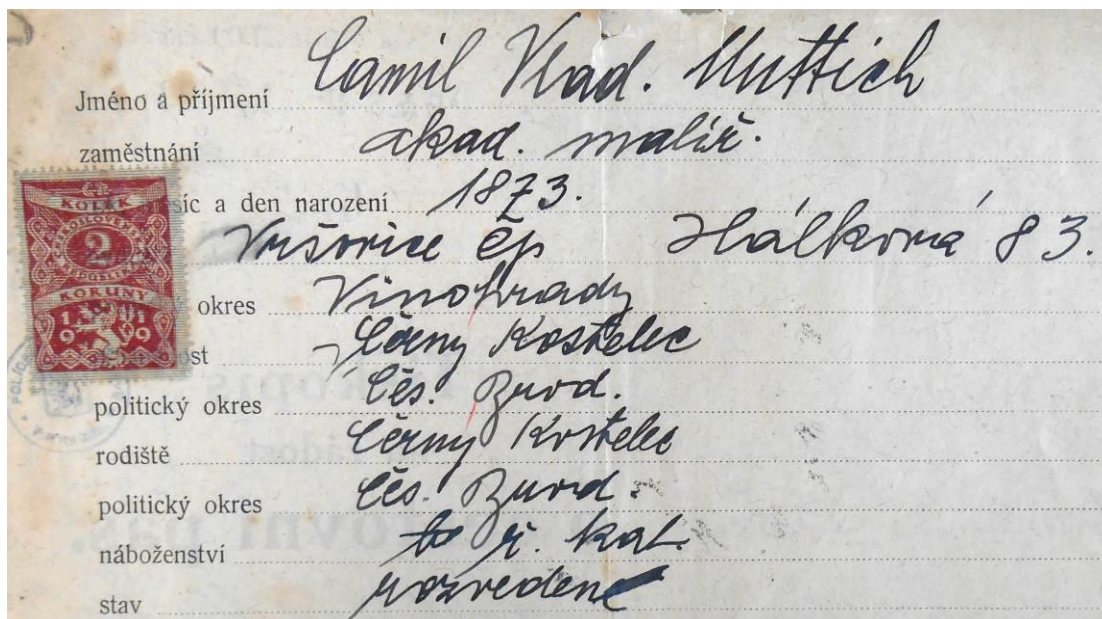 Jméno a příjmení Camil Vlad. Muttich
zaměstnání akad. malíř.
síc a den narození 1873.
Vršovice čp Hálková 83.
okres Vinohrady
ost Černy Kostelec
politický okres Čes. Brod.
rodiště Černy Kostelec
politický okres Čes. Brod.
náboženství ř. kat.
stav rozvedený
KOLEK
2
KORUNY
1919